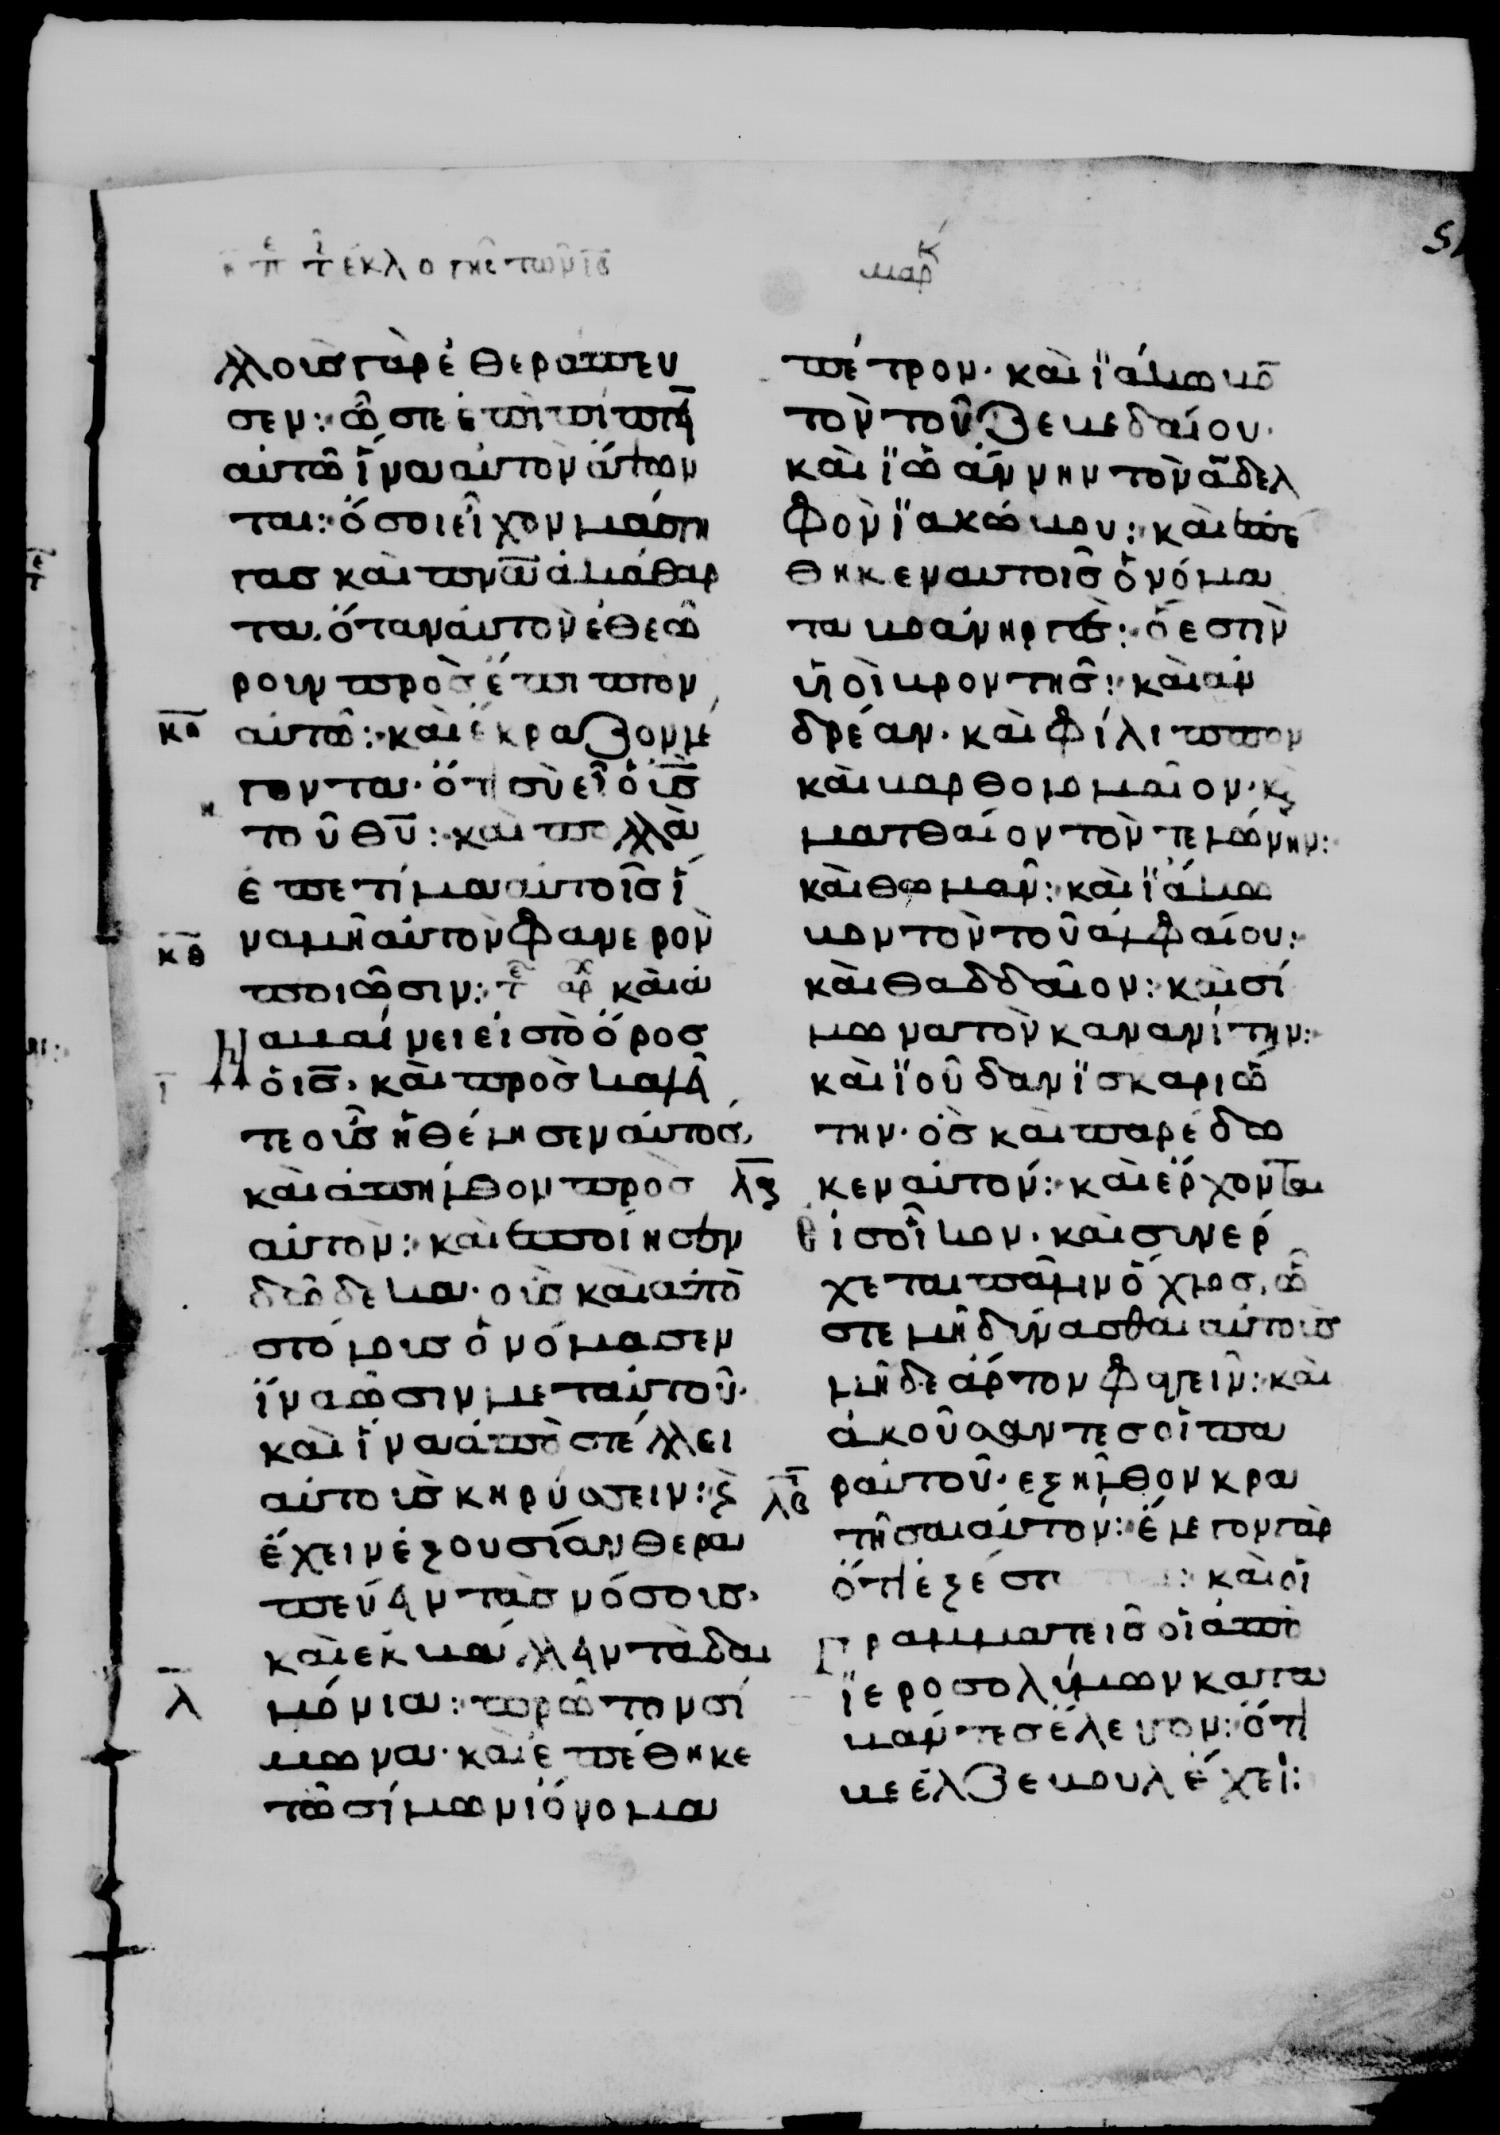 τ εκλογης των ιβ
μαρκ
λλοὺσ γὰρ ἐθεράπευ
σεν: ὥστε ἐπιπίπτειν
αὐτῶ ἵνα αὐτον ἅψων
ται: ὅσοι εἶχον μάστι
γασ καὶ πνα ἀκάθαρ
τα. ὅταν ἀυτὸν ἐθεώ
ρουν προσέπιπτον
κη αὐτῶ: καὶ ἔκραζον λέ
γοντα. ὅτι σὺ εἶ ὁ υσ
τοῦ θυ: καὶ πολλὰ
ἐπετίμα αὐτοῖσ ἵ
κθ να μὴ ἀυτον φανερὸν
ποιῶσιν: τε αρχ καὶ ἀ
ναβαίνει εἰσ τὸ ὄροσ
ὁ ισ. καὶ προσκαλῆ
τε οὓσ ἤθέλησεν ἀυτοσ,
καὶ ἀπῆλθον προσ
αὐτὸν: καὶ ἐποίησεν
δώδεκα. οὓσ καὶ ἀπὸ
στόλουσ ὀνόμασεν
ἵνα ὦσιν μετ αὐτοῦ.
καὶ ἵνα ἀποστέλλει
αὐτοὺσ κηρύσσειν: ϗ
ἔχειν ἐξουσίαν θερα
πεύειν τὰσ νόσουσ.
καὶ ἐκβάλλειν τὰ δαι
λ μόνια: πρῶτον σί
μωνα. καὶ ἐπέθηκε
τῶ σίμωνι ὄνομα
πέτρον. καὶ ϊάκωβο
τὸν τοῦ ζεβεδαίου.
καὶ ϊωάννην τὸν ἀδελ
φὸν ϊακώβου: καὶ ἐπε
θηκεν αυτοῖσ ὀνόμα
τα βοανηργέσ: ὅ εστὶν
ϋἱοὶ βροντῆσ: καὶ ἀν
δρέαν. καὶ φίλιππον
καὶ βαρθολομαῖον. ϗ
ματθαίον τὸν τελώνην:
καὶ θωμᾶν: καὶ ϊάκω
βον τὸν τοῦ ἀλφαίου:
καὶ θαδδαῖον: καὶ σί
μωνα τὸν κανανίτην:
καὶ ϊούδαν ϊσκαριώ
την. ὃσ καὶ παρέδω
λα κεν αὐτόν: καὶ ἔρχονται
εἰσ οἶκον. καὶ συνέρ
χεται πάλιν ὄχλοσ, ὥ
στε μὴ δύνασθαι αὐτοὺσ
μὴδε ἄρτον φαγεῖν: καὶ
ἀκούσαντεσ οἱ πα
λβ ραυτοῦ. εξῆλθον κρα
τῆσαι αὐτόν: ἔλεγον γὰρ
ὅτι ἐξέστη: καὶ οἱ
γραμματεῖσ οἱ ἀπὸ
ϊεροσολύμων κατα
βάντεσ ἔλεγον: ὅτι
βεελζεβουλ ἔχει: